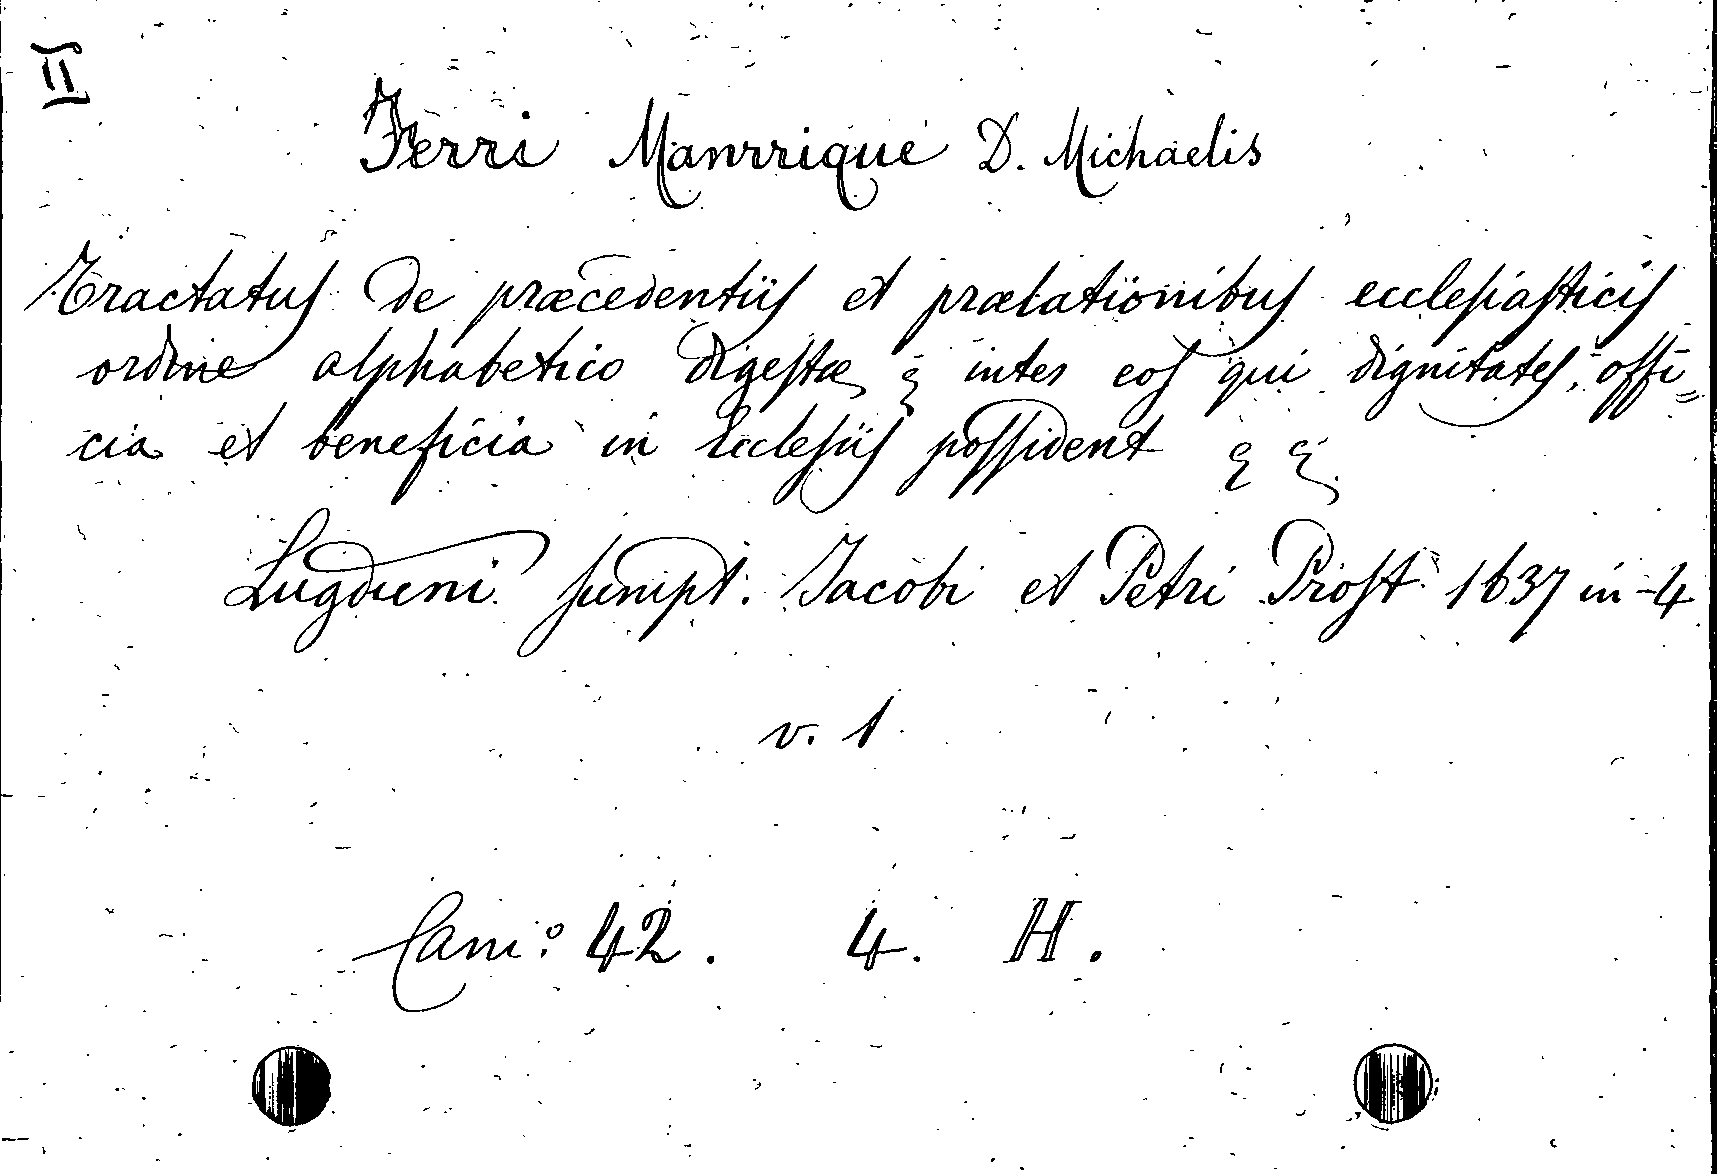 II
Ferri Manrrique D. Michaelis
Tractatus de præcedentiis et prælationibus ecclesiasticis
ordine alphabetico digestæ & inter eos qui dignitates, offi=
cia et beneficia in Ecclesiis possident & &
Lugduni sumpt. Jacobi et Petri Prost 1637 in-4
v. 1
Cam.º 42. 4. H.